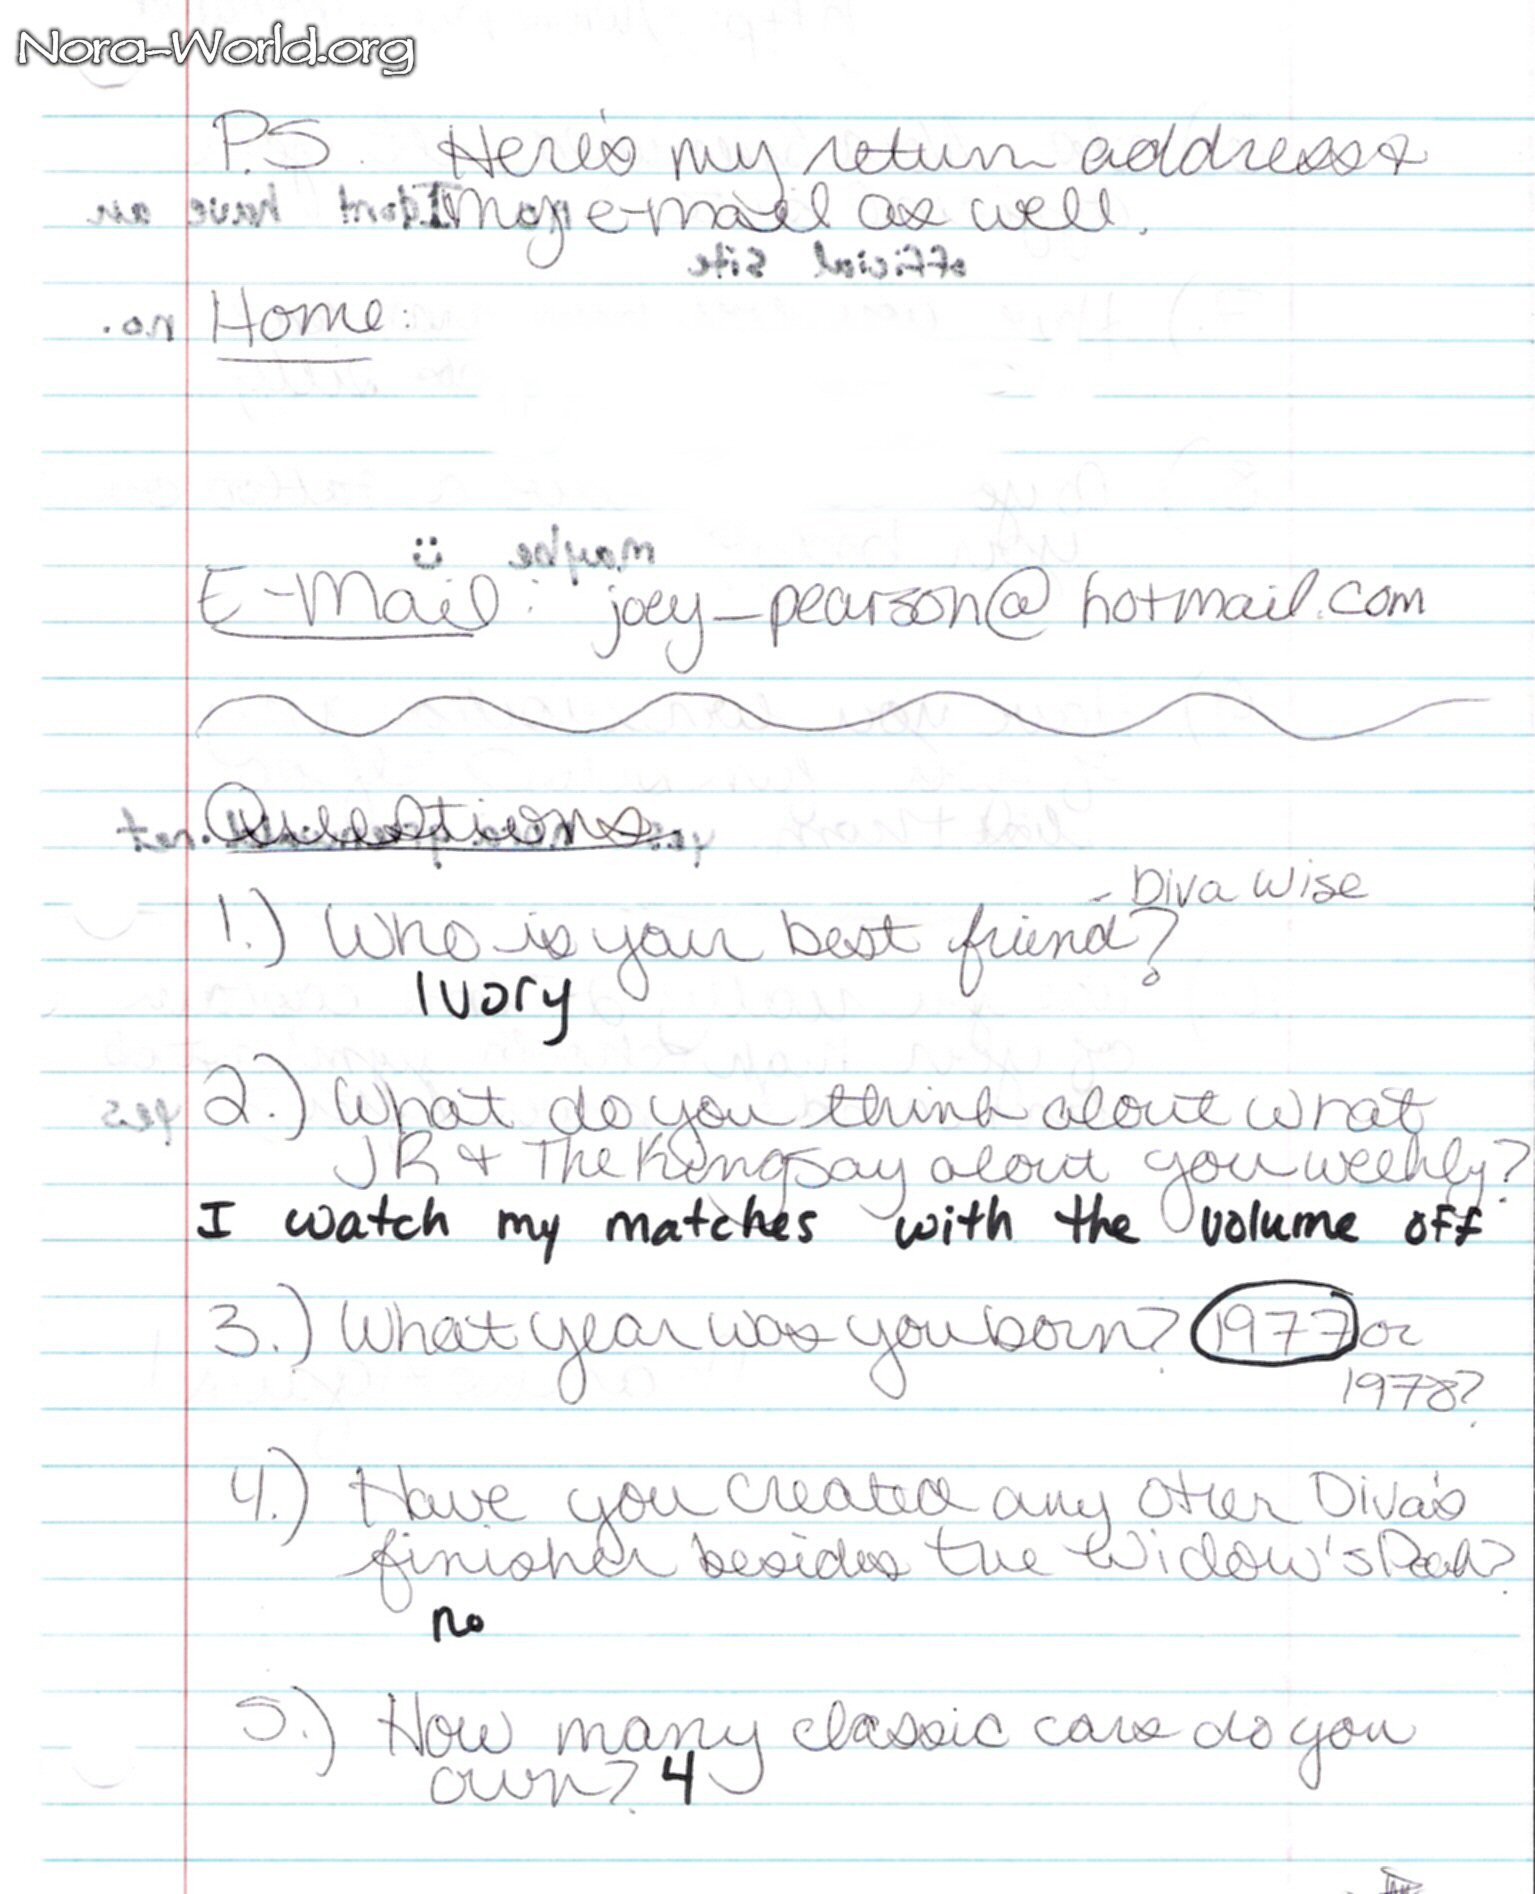 Nora-World.org
P.S. Here's my return address &
my e-mail as well.
Home:
E-Mail: joey_pearson@hotmail.com
Questions
1.) Who is your best friend? - Diva Wise
Ivory
2.) What do you think about what
JR & The King say about you weekly?
I watch my matches with the volume off
3.) What year was you born? 1977 or
1978?
4.) Have you created any other Diva's
finisher besides the Widow's Peak?
no
5.) How many classic cars do you
own? 4